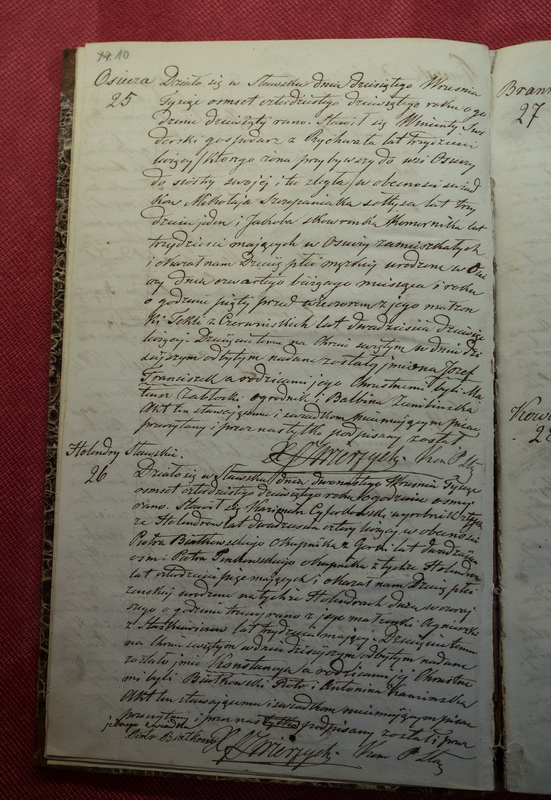 14.10
Osiecza Działo się w Sławsku dnia dziesiątego Września
25 tysiąc osmset czterdziestego dziewiątego roku o go
dzinie dziewiątej rano. Stawił się Wincenty
gospodarz z Rychwała lat trzydzieści
liczący, którego żona przybywszy do wsi Osieczy
do siostry swojej i tu zległa, w obecności świad
ków Mikołaja Szczepaniaka sołtysa lat trzy
dzieści jeden i Jakóba Skowronka Komornika lat
trzydzieści mających w Osieczy zamieszkałych
i okazał nam Dziecię płci męzkiej urodzone w Osie
czy dnia czwartego bieżącego miesiąca i roku
o godzinie piątej przed wieczorem z jego małżon
ki Tekli z Czerwińskich lat dwadzieścia dziewięć
liczącej. Dziecięciu temu na Chrzcie świętym w dniu dzi
siejszym odbytym nadane zostały imiona Józef
Franciszek a rodzicami jego Chrzestnemi byli Ma
teusz Zabłocki ogrodnik i Balbina
Akt ten stawającemu i świadkom nieumiejącym pisać
przeczytany i przez nas tylko podpisany został
X J Kom P
Holendry Sławskie.
26 Działo się w Sławsku dnia dwunastego Września Tysiąc
osmset czterdziestego dziewiątego roku o godzinie osmej
rano. Stawił się Kazimierz wyrobnik z tych
że Holendrów lat dwadzieścia cztery liczący w obecności
Piotra Białkowskiego okupnika z Gorki lat dwadzieścia
osm i Piotra okupnika z tychże Holendrów
lat czterdzieści pięć mających i okazał nam Dziecię płci
żenskiej urodzone na tychże Holendrach dnia wczoraj
szego o godzinie trzeciej rano z jego małżonki Agnieszki
z lat trzydzieści mającej. Dziecięciu temu
na Chrzcie świętym w dniu dzisiejszym odbytym nadane
zostało imie Konstancya a rodzicami jej Chrzestne
mi byli Białkowski Piotr i Antonina Kaminska
Akt ten stawającemu i świadkom nieumiejącym pisać
przeczytany i przez nas tylko podpisany został i przez
jednego świadka
Piotr Białkowski X J Kom P
Brann
27
Kow
28